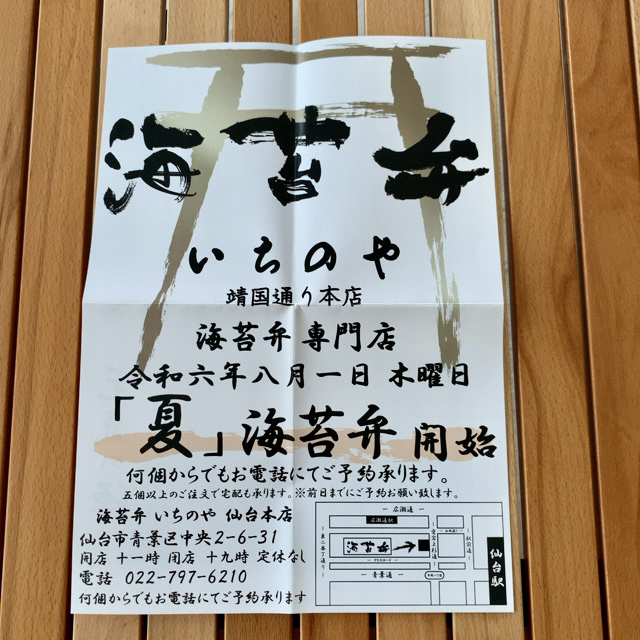 海苔弁
いちのや
靖国通り本店
海苔弁専門店
令和六年八月一日 木曜日
「夏」海苔弁 開始
何個からでもお電話にてご予約承ります。
五個以上のご注文で宅配も承ります。※前日までにご予約お願い致します。
海苔弁 いちのや 仙台本店
仙台市青景区中央2-6-31
開店 十一時 閉店 十九時 定休なし
電話 022-797-6210
何個からでもお電話にてご予約承ります
広瀬通
広瀬通駅
海苔弁
クリスロード
青景通
東二番丁通り
駅前通
仙台駅